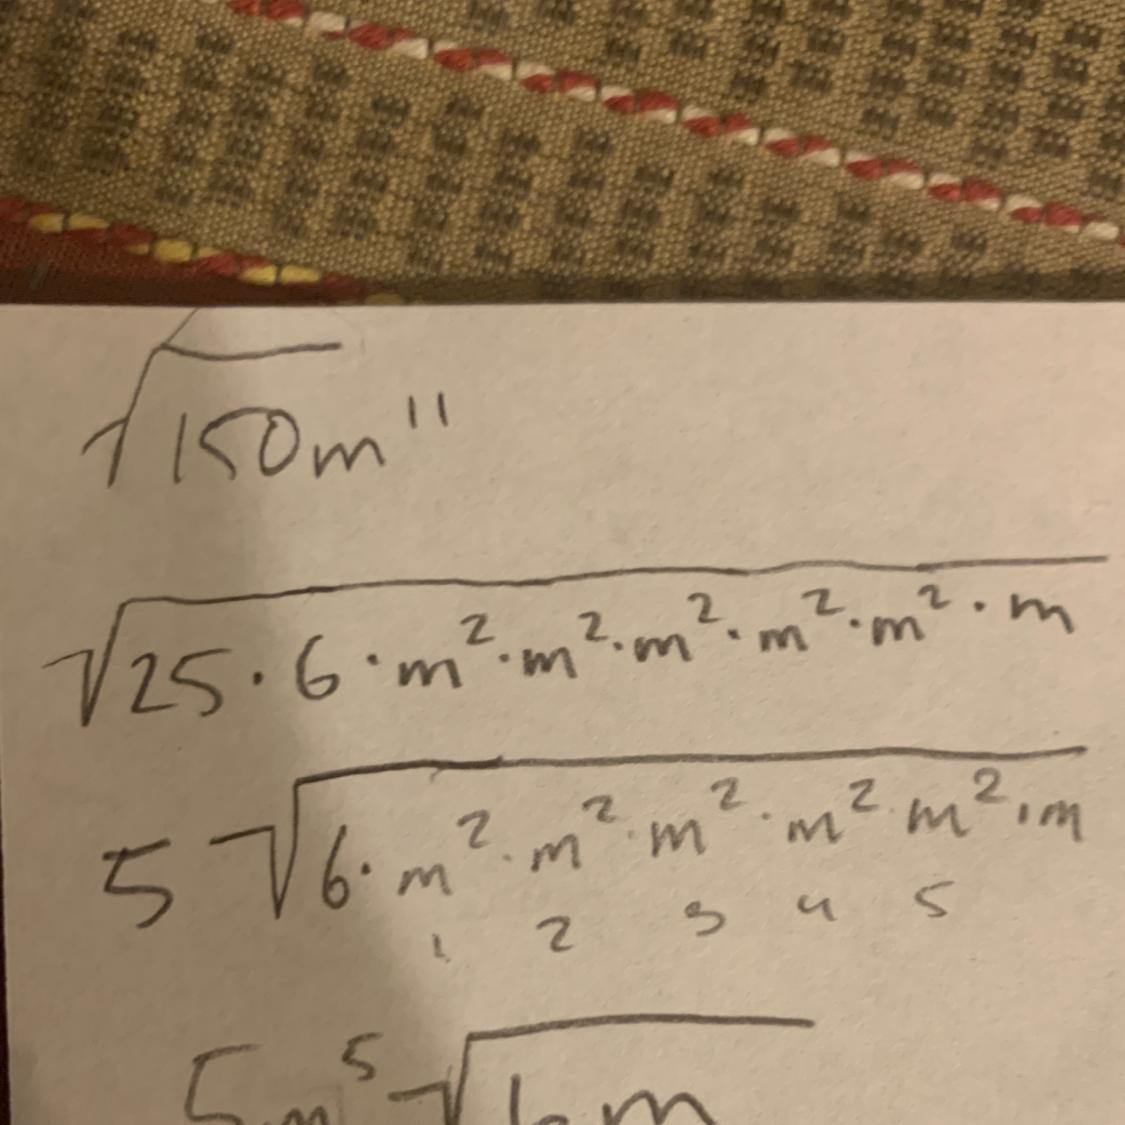 √150m¹¹
√25·6·m²·m²·m²·m²·m²·m
5√6·m²·m²·m²·m²m²·m
1 2 3 4 5
5m⁵√6m